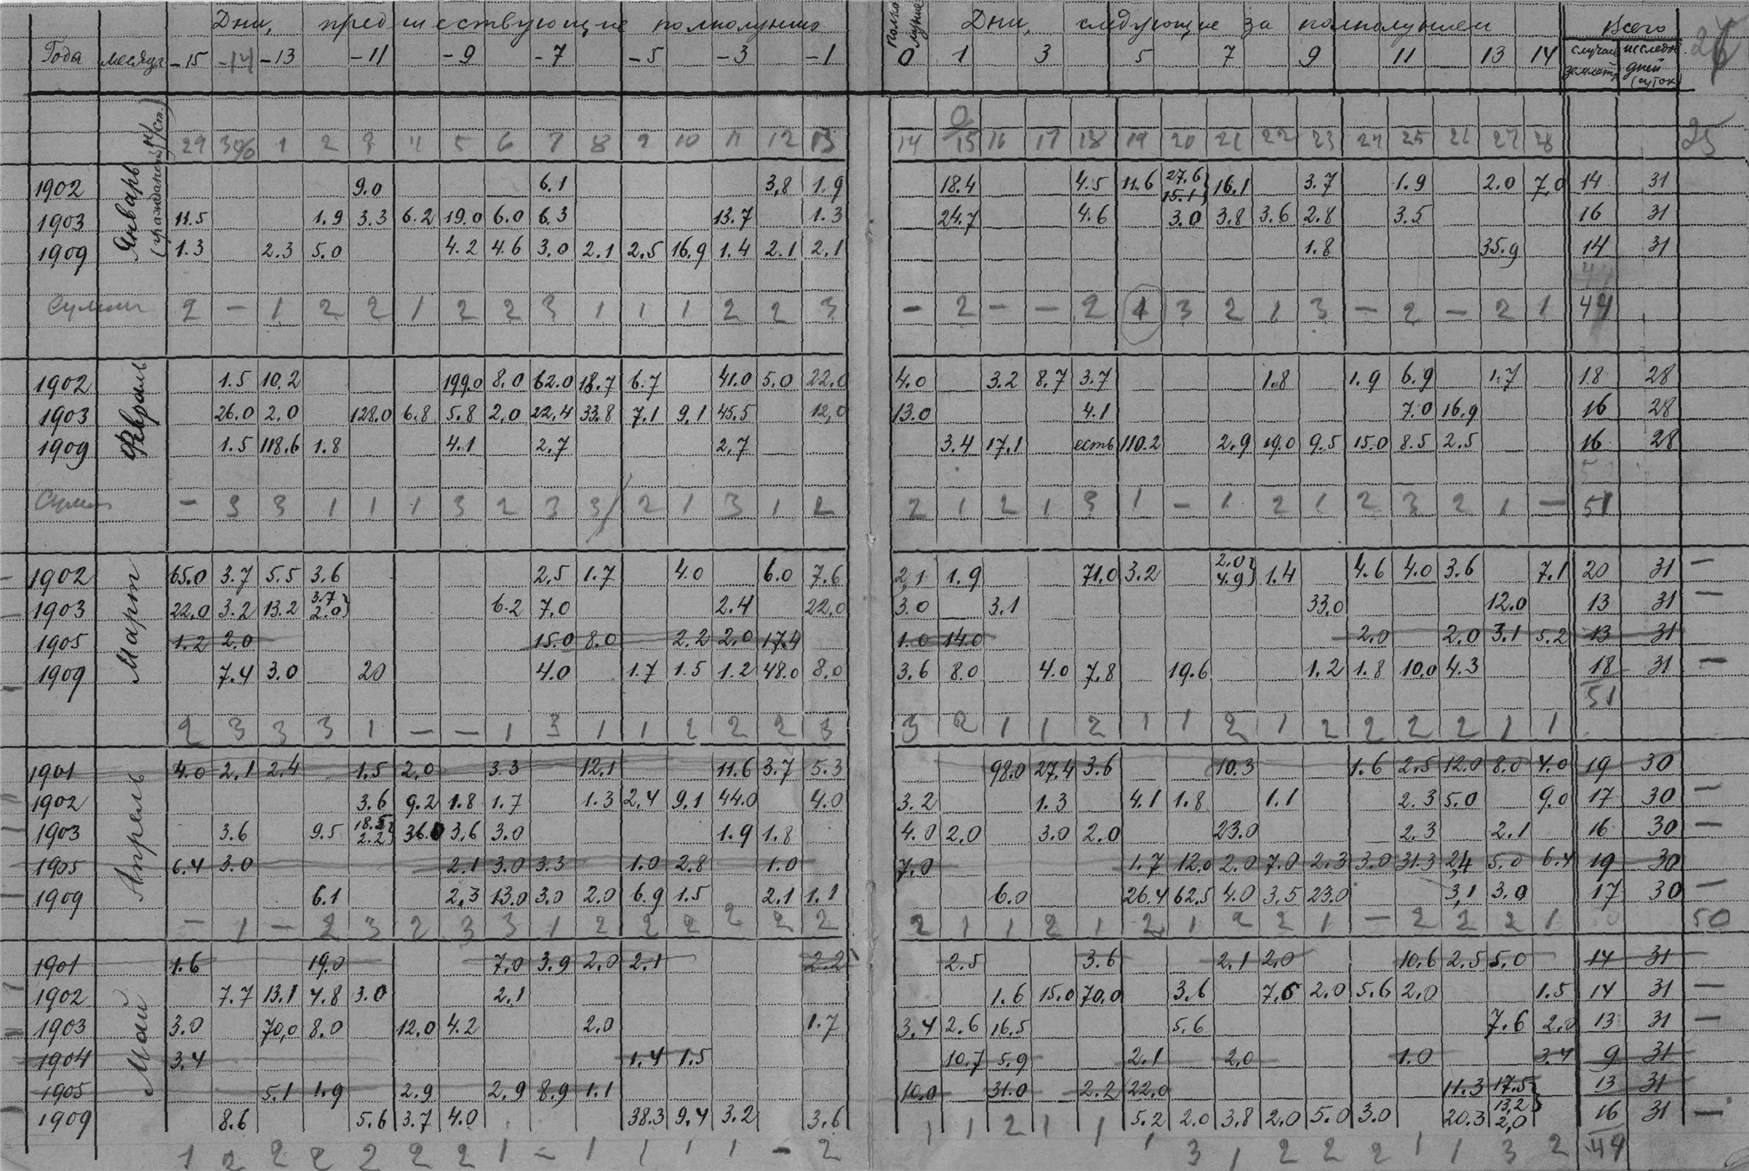 Дни, предшествующие полнолунию Полнолуние Дни, следующие за полнолунием Всего
Года месяца -15 -14 -13 -11 -9 -7 -5 -3 -1 0 1 3 5 7 9 11 13 14 случаев дней (суток)
Январь
29 1 2 3 4 5 6 7 8 9 10 11 12 13 14 15 16 17 18 19 20 21 22 23 24 25 26 27 28 25
1902 9.0 6.1 3,8 1.9 18.4 4.5 11.6 27.6 15.1 16,1 3.7 1.9 2.0 7,0 14 31
1903 11.5 1.9 3.3 6.2 19.0 6.0 6.3 13.7 1.3 24.7 4.6 3.0 3.8 3.6 2.8 3.5 16 31
1909 1.3 2.3 5.0 4.2 4.6 3.0 2.1 2.5 16.9 1.4 2.1 2,1 1.8 35.9 14 31
Сумма 2 - 1 2 2 1 2 2 3 1 1 1 2 2 3 - 2 - - 2 1 3 2 1 3 - 2 - 2 1 44
Февраль
1902 1.5 10,2 199.0 8.0 62.0 18.7 6.7 41.0 5.0 22.0 4.0 3.2 8.7 3.7 1.8 1.9 6.9 1.7 18 28
1903 26.0 2.0 128.0 6.8 5.8 2,0 22,4 33.8 7.1 9,1 45.5 12,0 13.0 4.1 7.0 16.9 16 28
1909 1.5 118.6 1.8 4.1 2.7 2,7 3.4 17,1 есть 110.2 2,9 19.0 9.5 15.0 8.5 2.5 16 28
Сумма - 3 3 1 1 1 3 2 3 3 2 1 3 1 2 2 1 2 1 3 1 - 1 2 1 2 3 2 1 - 51
Март
1902 65.0 3.7 5.5 3.6 2,5 1.7 4.0 6.0 7.6 2,1 1.9 71.0 3.2 2.0 4.9 1.4 4.6 4.0 3.6 7.1 20 31 -
1903 22.0 3.2 13.2 3.7 2.0 6.2 7.0 2.4 22,0 3.0 3.1 33.0 12.0 13 31 -
1905 1.2 2.0 15.0 8.0 2.2 2.0 17.4 1.0 14.0 2.0 2.0 3.1 5.2 13 31
1909 7.4 3.0 20 4.0 1.7 1.5 1.2 48.0 8.0 3.6 8.0 4.0 7.8 19.6 1.2 1.8 10.0 4.3 18 31 -
51
2 3 3 3 1 - - 1 3 1 1 2 2 2 3 3 2 1 1 2 1 1 2 1 2 2 2 2 1 1
Апрель
1901 4.0 2,1 2,4 1.5 2,0 3.3 12,1 11.6 3.7 5.3 98.0 27.4 3.6 10.3 1.6 2.5 12.0 8.0 4.0 19 30
1902 3.6 9.2 1.8 1.7 1.3 2,4 9,1 44.0 4.0 3.2 1.3 4.1 1.8 1.1 2.3 5.0 9.0 17 30 -
1903 3.6 9.5 18.5 2.2 36.0 3.6 3.0 1.9 1.8 4.0 2,0 3.0 2.0 23.0 2.3 2.1 16 30 -
1905 6.4 3.0 2.1 3.0 3.3 1.0 2.8 1.0 7.0 1.7 12.0 2.0 7.0 2.3 3.0 31.3 2,4 5.0 6.4 19 30
1909 6.1 2,3 13.0 3.0 2.0 6.9 1.5 2.1 1.1 6.0 26.4 62.5 4.0 3.5 23.0 3,1 3.0 17 30 -
- 1 - 2 3 2 3 3 1 2 2 2 2 2 2 2 1 1 2 1 2 1 2 2 1 - 2 2 2 1 50
Май
1901 1.6 19.0 7.0 3.9 2.0 2.1 2.2 2.5 3.6 2.1 2.0 10.6 2.5 5.0 14 31
1902 7.7 13.1 4.8 3.0 2,1 1.6 15.0 70.0 3.6 7.5 2.0 5.6 2.0 1.5 14 31 -
1903 3.0 70,0 8.0 12.0 4.2 2.0 1.7 3.4 2.6 16.5 5.6 7.6 2.0 13 31 -
1904 3.4 1.4 1.5 10.7 5.9 2.1 2,0 1.0 3.4 9 31
1905 5.1 1.9 2.9 2,9 8.9 1.1 10.0 31.0 2.2 22.0 11.3 17.5 13 31
1909 8.6 5.6 3.7 4.0 38.3 9.4 3.2 3.6 5.2 2.0 3,8 2.0 5.0 3.0 20.3 13,2 2,0 16 31 -
1 2 2 2 2 2 2 1 - 1 1 1 1 - 2 1 1 2 1 1 1 3 1 2 2 2 1 1 3 2 49